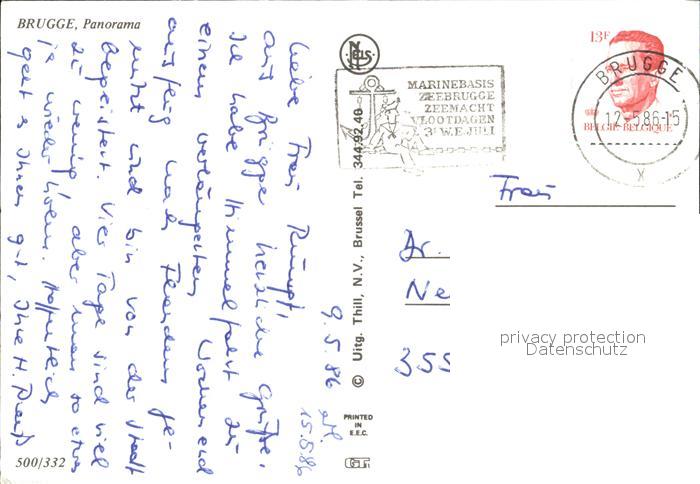 BRUGGE, Panorama
9. 5. 86
Liebe Frau Rumpf,
aus Brügge herzliche Grüße.
Ich habe Himmelfahrt zu
einem verlängerten Wochenend
ausflug nach Flandern ge-
nutzt und bin von der Stadt
begeistert. Vier Tage sind viel
zu wenig, aber man so etwas
ja wieder holen. Hoffentlich
geht es Ihnen gut, Ihre H.
15.5.86
500/332
NELS
© Uitg. Thill, N.V., Brussel Tel. 344.92.40
PRINTED
IN
E.E.C.
MARINEBASIS
ZEEBRUGGE
ZEEMACHT
VLOOTDAGEN
3e W.E. JULI
13F
BELGIE-BELGIQUE
BRUGGE
12-5.86-15
X
Frau
Dr.
Ne
355
privacy protection
Datenschutz